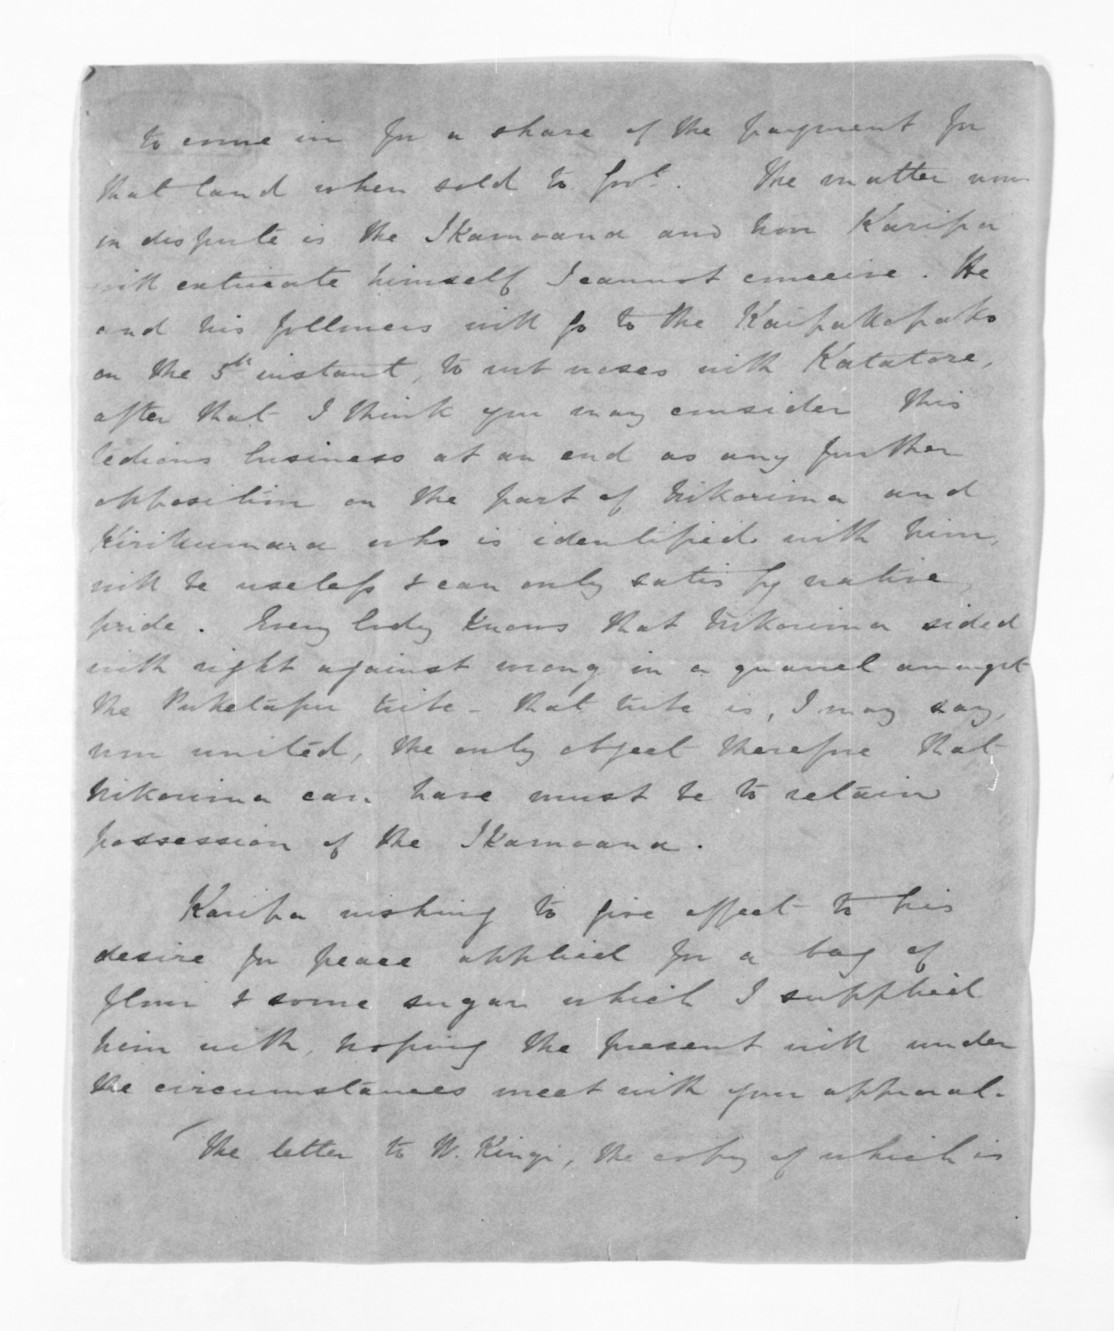 to come in for a share of the payment for
that land when sold to Govt. The matter now
in dispute is the Ikamoana and how Karipa
will extricate himself I cannot conceive. He
and his followers will go to the Kaipakopako
on the 5th instant, to rub noses with Katatore,
after that I think you may consider this
tedious business at an end as any further
opposition on the part of Nikorima and
Kirikumara who is identified with him,
will be useless & can only satisfy native
pride. Every body knows that Nikorima sided
with right against wrong in a quarrel amongst
the Puketapu tribe - that tribe is, I may say,
now united, the only object therefore that
Nikorima can have must be to retain
possession of the Ikamoana.
Karipa wishing to give effect to his
desire for peace applied for a bag of
flour & some sugar which I supplied
him with, hoping the present will under
the circumstances meet with your approval.
The letter to W. Kingi, the copy of which is